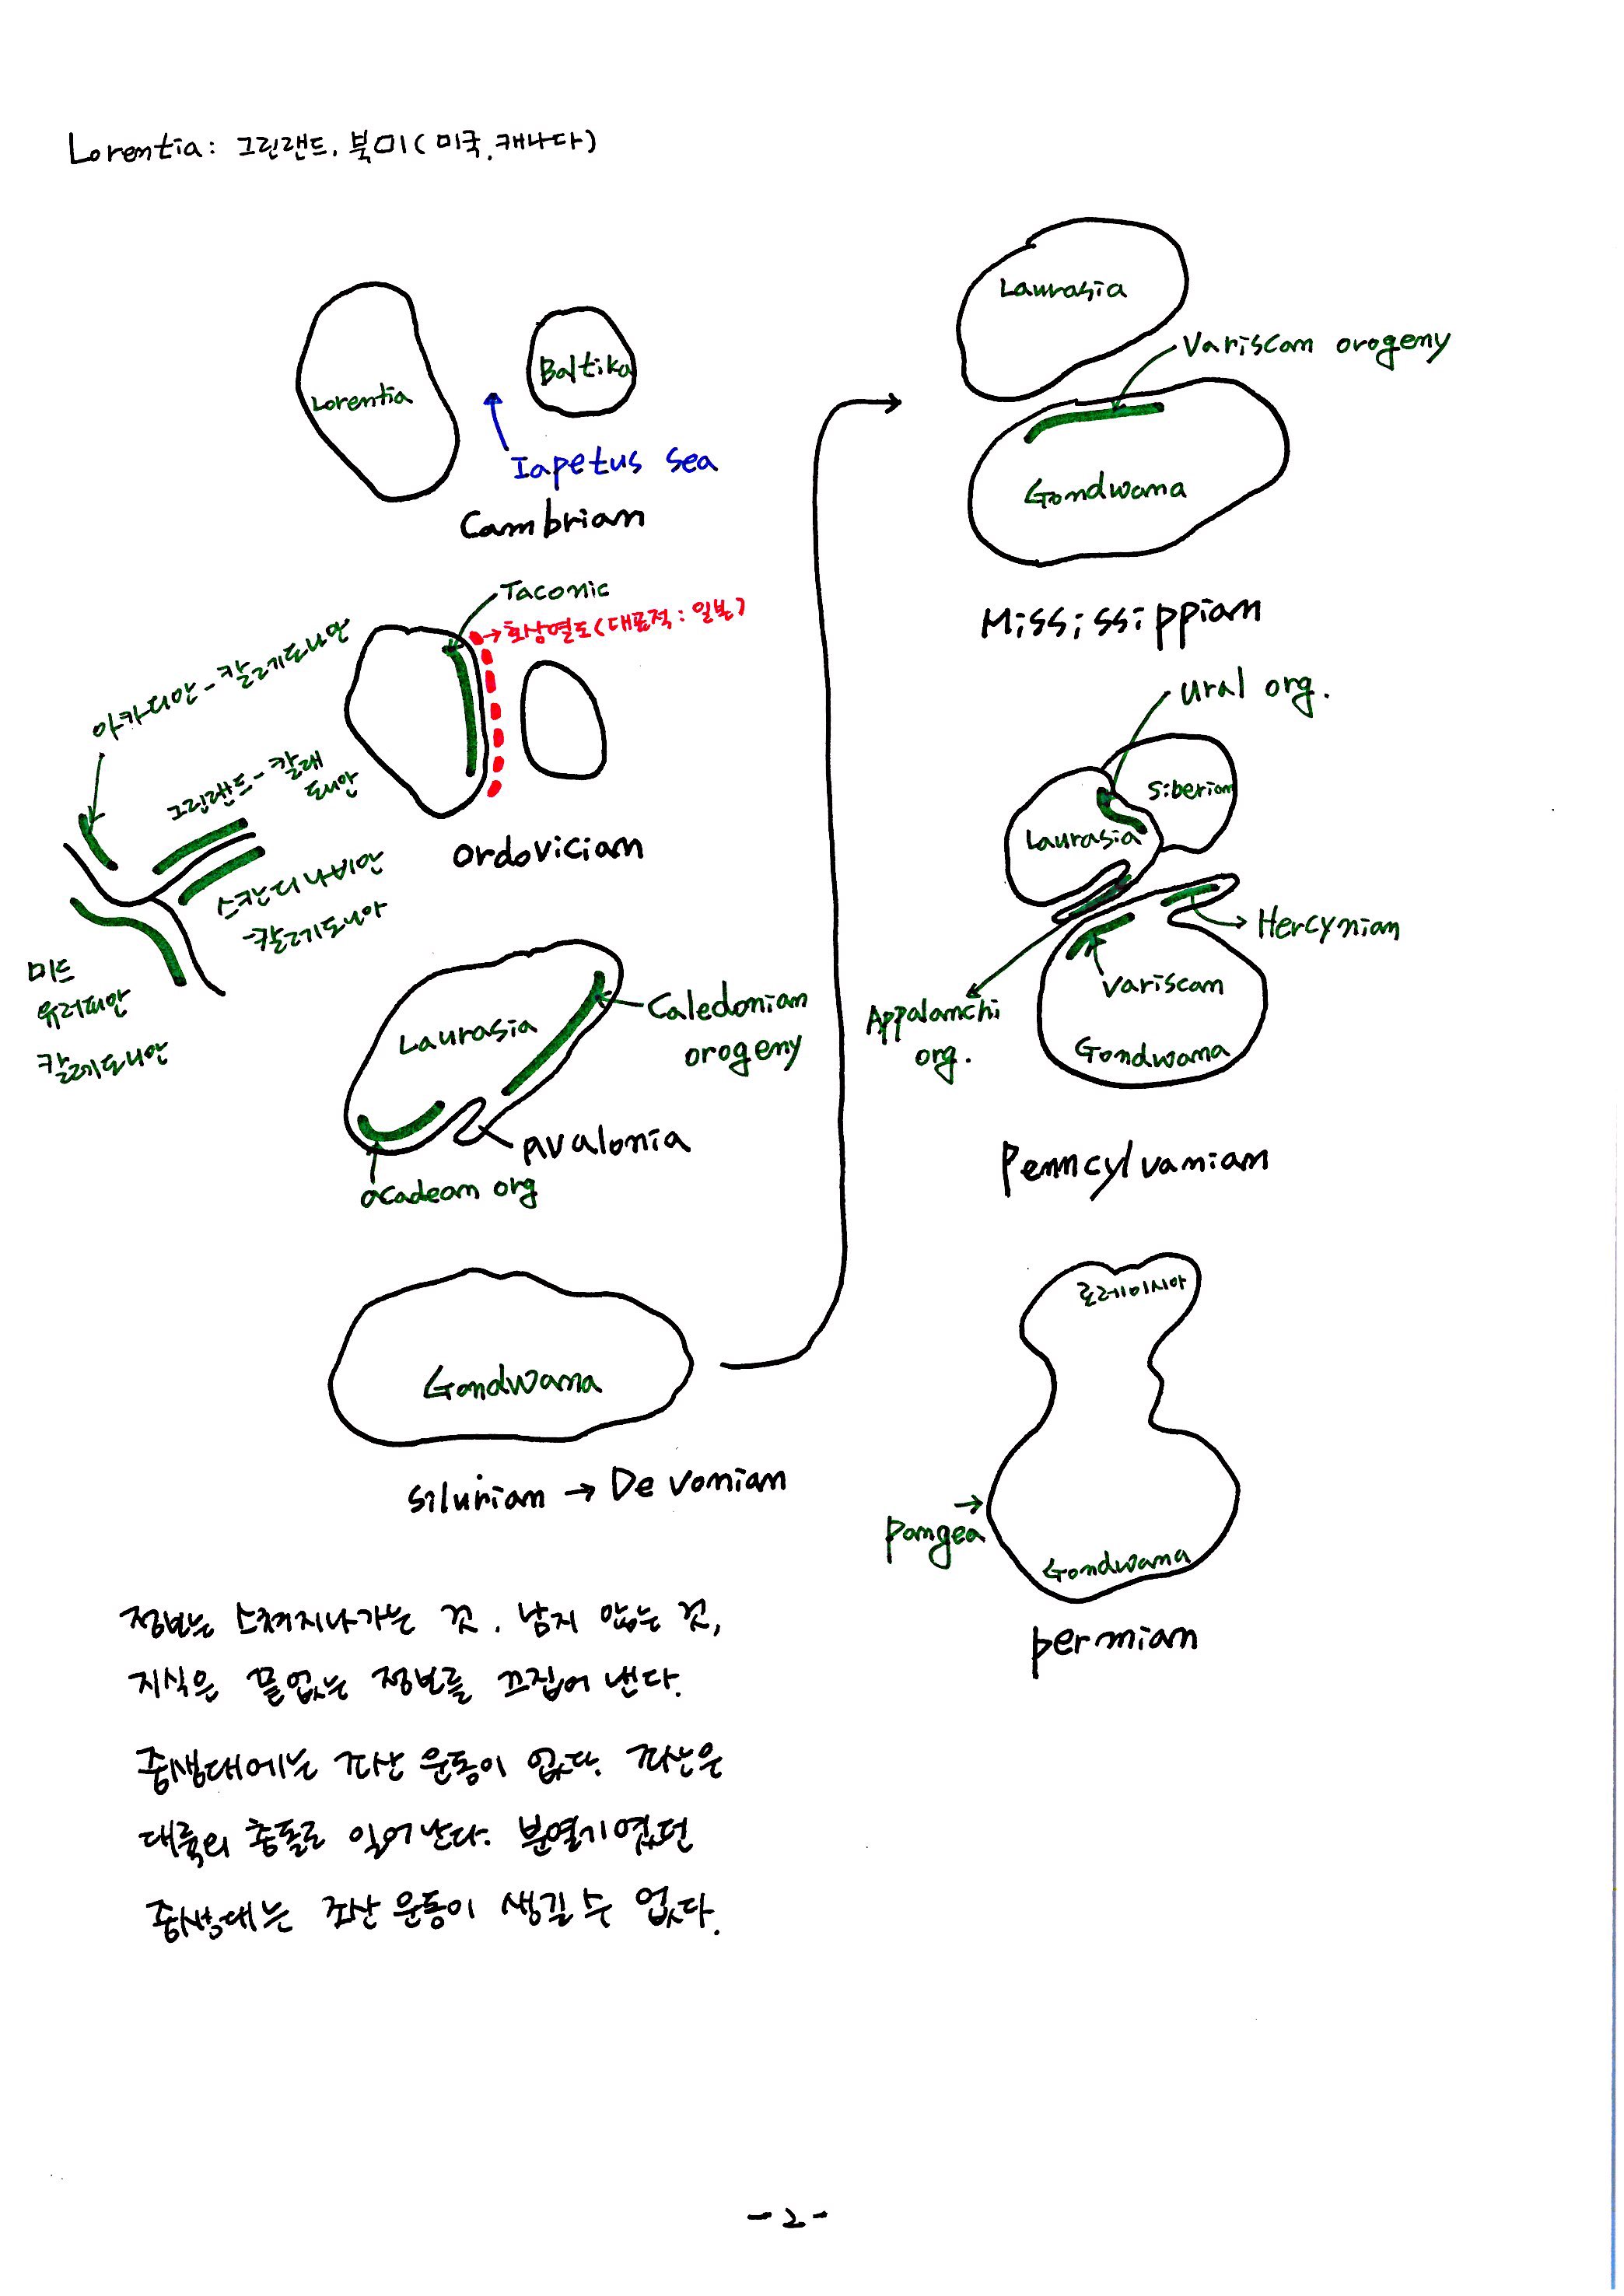 Lorentia: 그린랜드, 북미(미국,캐나다)
Lorentia
Baltika
Iapetus sea
Cambrian
Taconic
→화상열도(대표적: 일본)
Ordovician
아카디안-칼레도니안
그린랜드-칼래
도니안
스칸디나비안
-칼레도니아
미드
유러피안
칼레도니안
Laurasia
Caledonian
orogeny
Avalonia
acadean org
Gondwana
Silurian → Devonian
Laurasia
Variscan orogeny
Gondwana
Mississippian
Ural org.
Siberian
Laurasia
Hercynian
Variscan
Appalanchi
org.
Gondwana
Penncylvanian
로레이시아
→
Pangea
Gondwana
permian
정보는 스쳐지나가는 것. 남지 않는 것,
지식은 끝없는 정보를 끄집어 낸다.
중생대에는 조산 운동이 없다. 조산은
대륙의 충돌로 일어난다. 분열기였던
중생대는 조산 운동이 생길 수 없다.
-2-